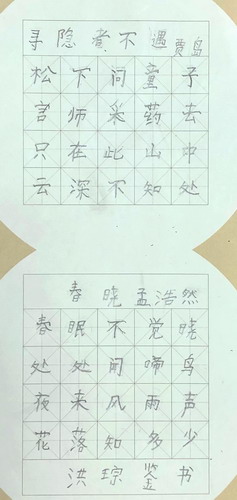 寻隐者不遇 贾岛
松下问童子
言师采药去
只在此山中
云深不知处
春晓 孟浩然
春眠不觉晓
处处闻啼鸟
夜来风雨声
花落知多少
洪琮鉴书